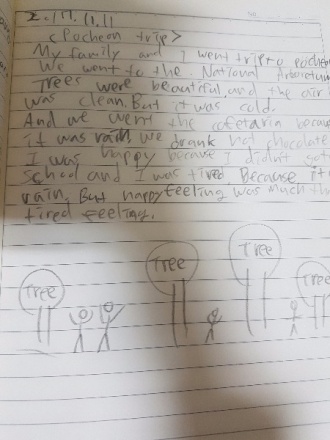 <Pocheon trip>
My family and I went trip to pocheon
We went to the National Arboretum
Trees were beautiful and the air
was clean. But it was cold.
And we went the cafetaria because
it was rain, we drank hot chocolate
I was happy because I didn't got
school and I was tired Because it
rain, But happy feeling was much tha
tired feeling.
Tree
Tree
Tree
Tree